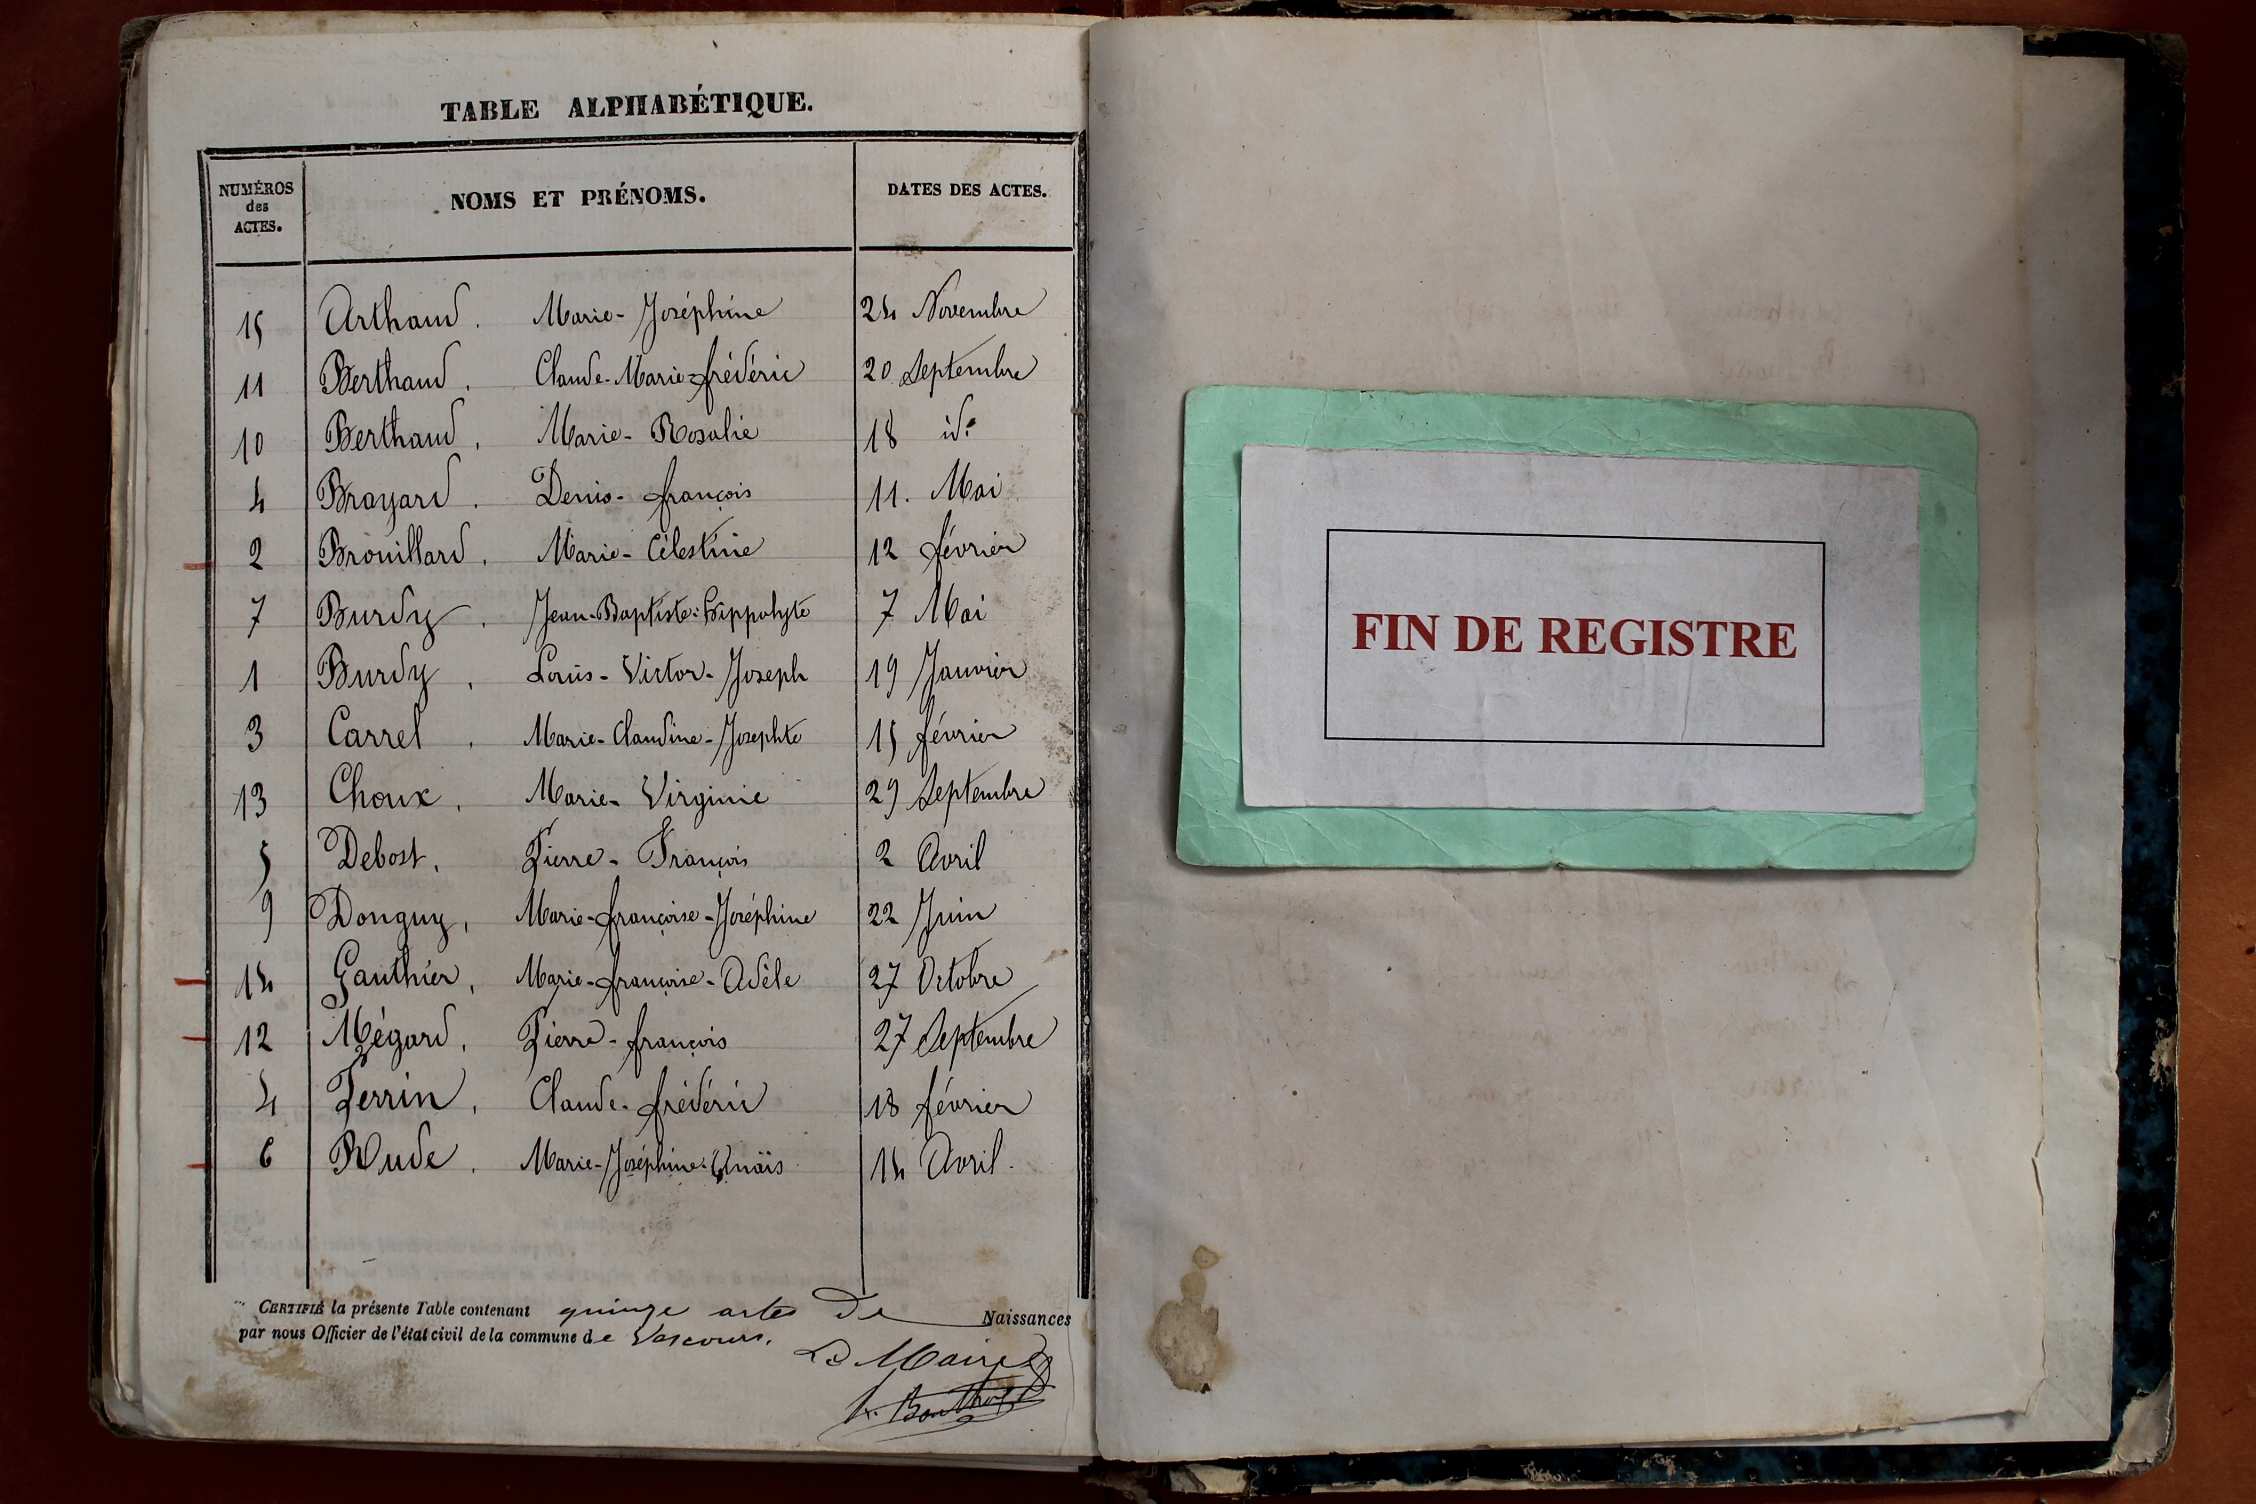 TABLE ALPHABÉTIQUE.
NUMÉROS des ACTES. NOMS ET PRÉNOMS. DATES DES ACTES.
15 Arthaud. Marie-Joséphine 24 Novembre
11 Berthaud, Claude-Marie-frédéric 20 Septembre
10 Berthaud, Marie-Rosalie 18 id.
4 Brayard. Denis-françois 11. Mai
2 Brouillard. Marie-Célestine 12 février
7 Burdy, Jean-Baptiste-hippolyte 7 Mai
1 Burdy, Louis-Victor-Joseph 19 Janvier
3 Carrel, Marie-Claudine-Josephte 15 février
13 Choux, Marie-Virginie 29 Septembre
5 Debost, Pierre-François 2 Avril
9 Donguy, Marie-françoise-Joséphine 22 Juin
14 Gauthier, Marie-françoise-Adèle 27 Octobre
12 Mégard, Pierre-françois 27 Septembre
4 Perrin, Claude-frédéric 18 février
6 Rude, Marie-Joséphine-Anaïs 14 Avril.
CERTIFIÉ la présente Table contenant quinze actes De Naissances
par nous Officier de l'état civil de la commune de
Le Maire
FIN DE REGISTRE